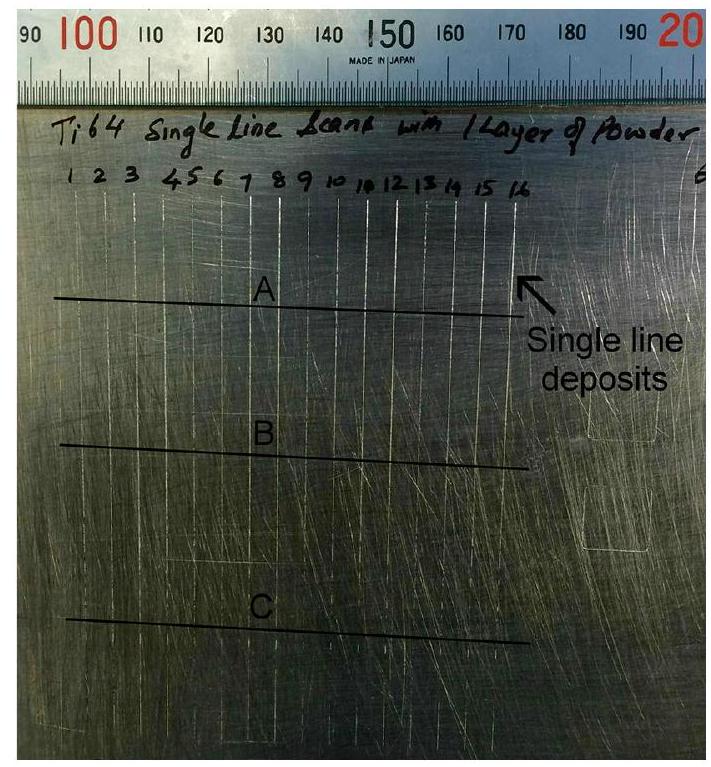 90 100 110 120 130 140 150 160 170 180 190 20
MADE IN JAPAN
Ti64 Single line Scans with 1 Layer of Powder
1 2 3 4 5 6 7 8 9 10 12 13 14 15 16
A
Single line
deposits
B
C